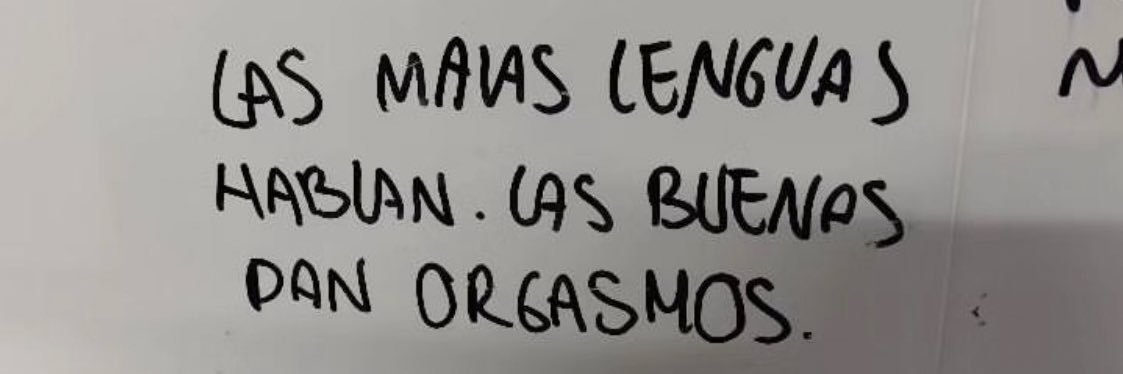 LAS MALAS LENGUAS
HABLAN. LAS BUENAS
DAN ORGASMOS.